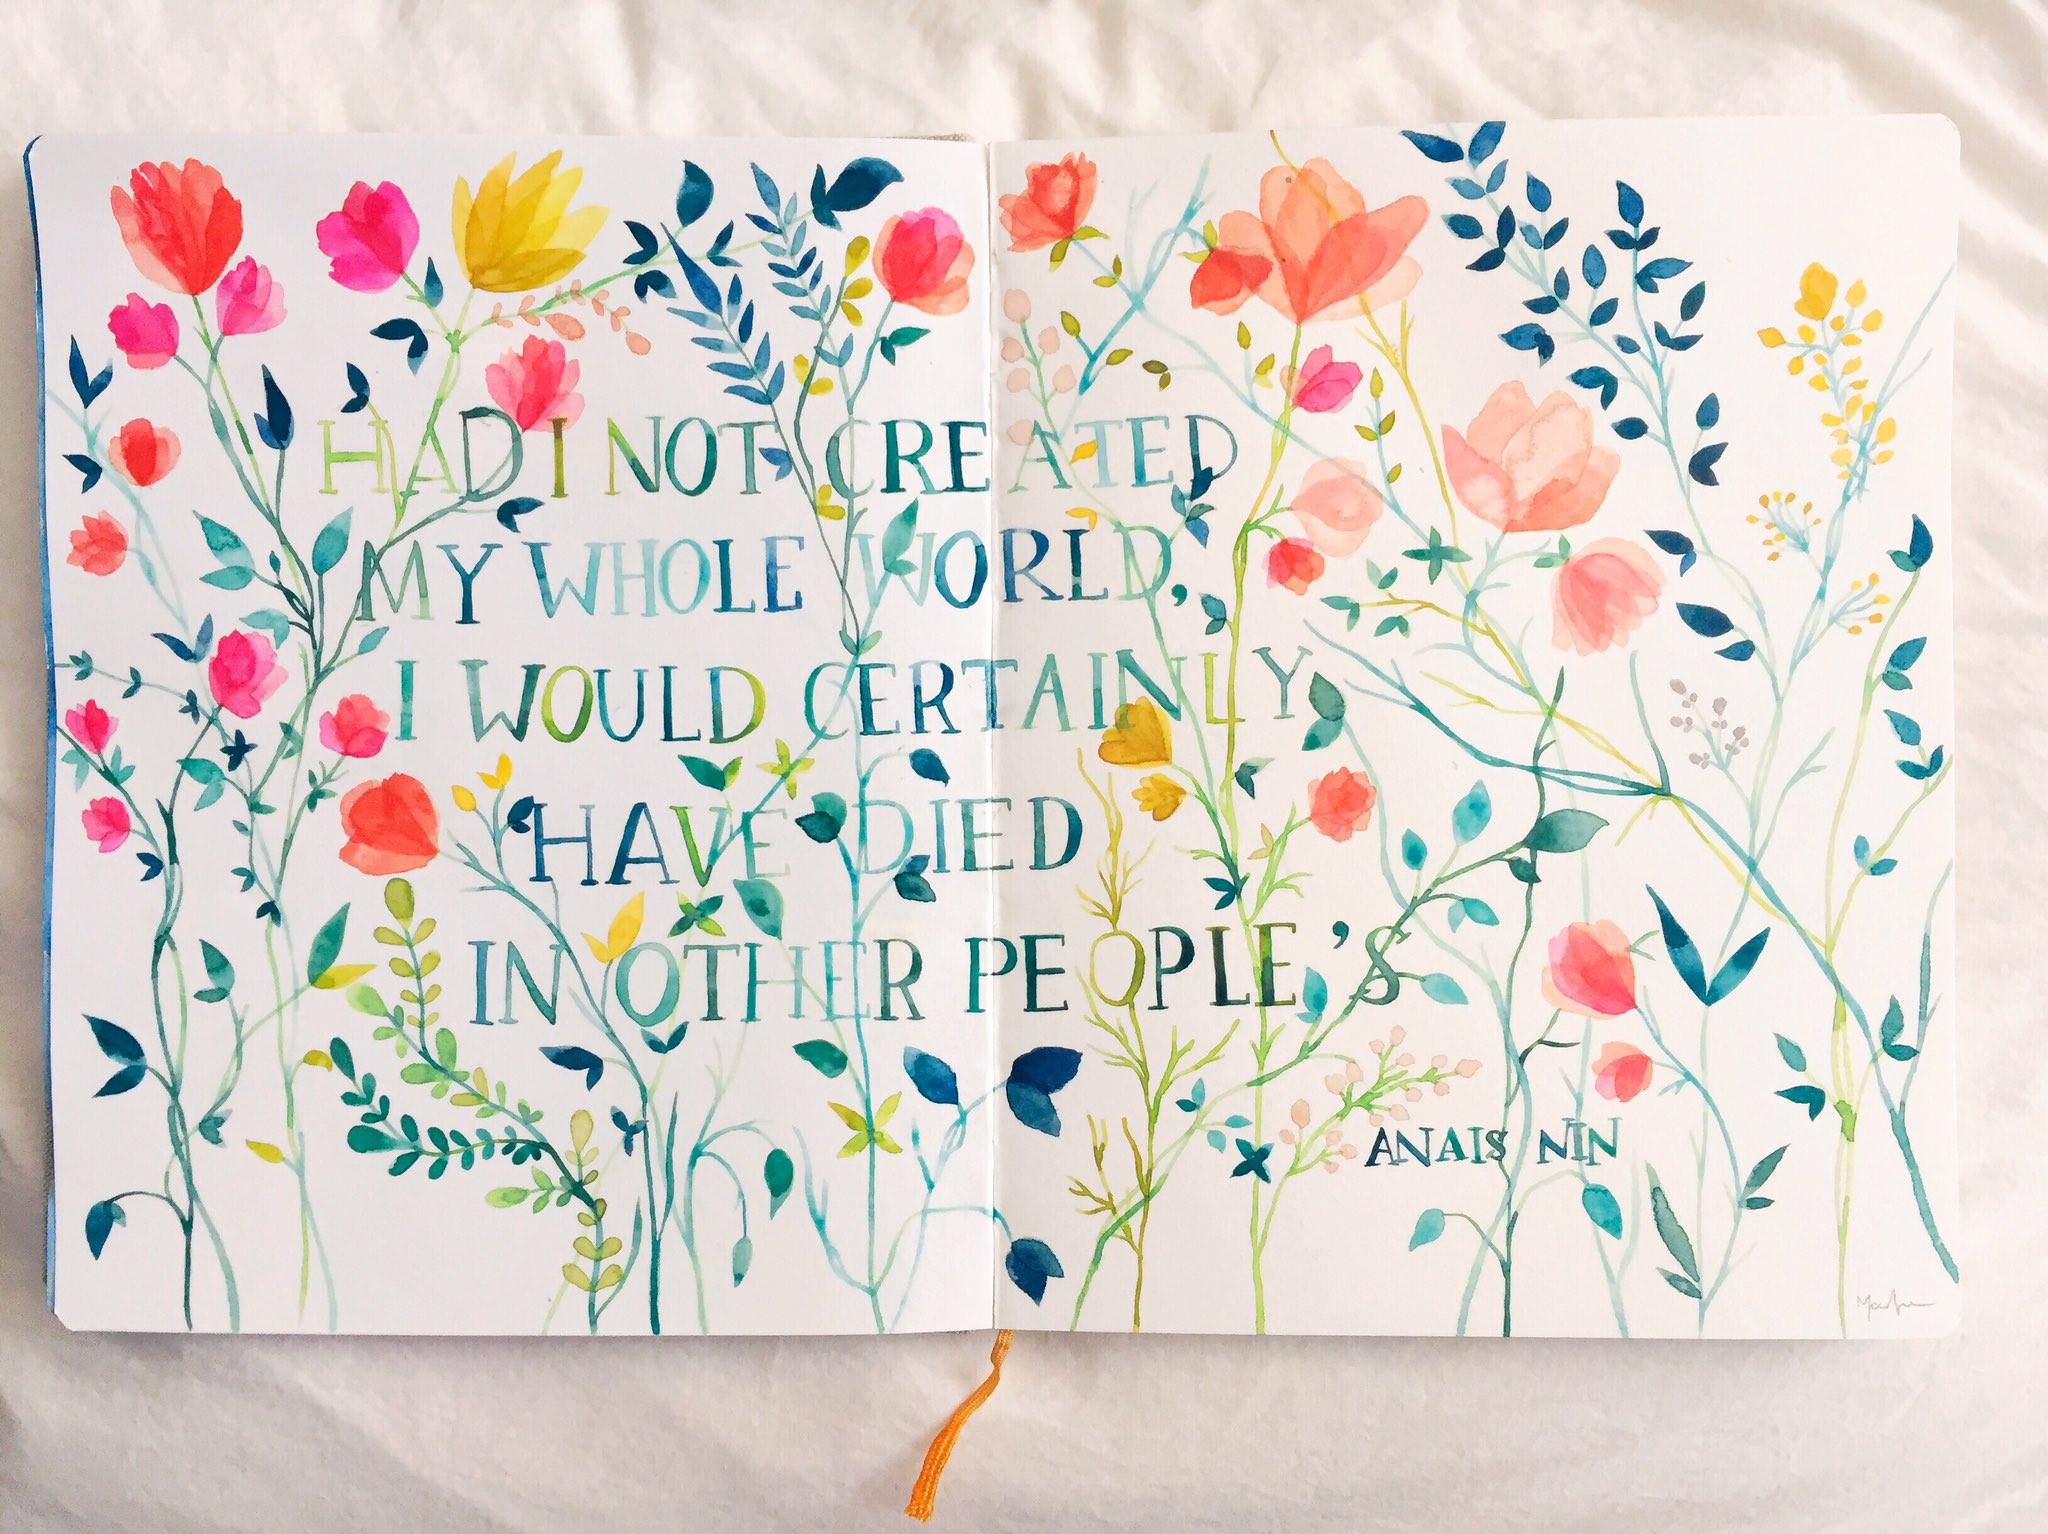 HAD I NOT CREATED
MY WHOLE WORLD,
I WOULD CERTAINLY
HAVE DIED
IN OTHER PEOPLE'S
ANAIS NIN